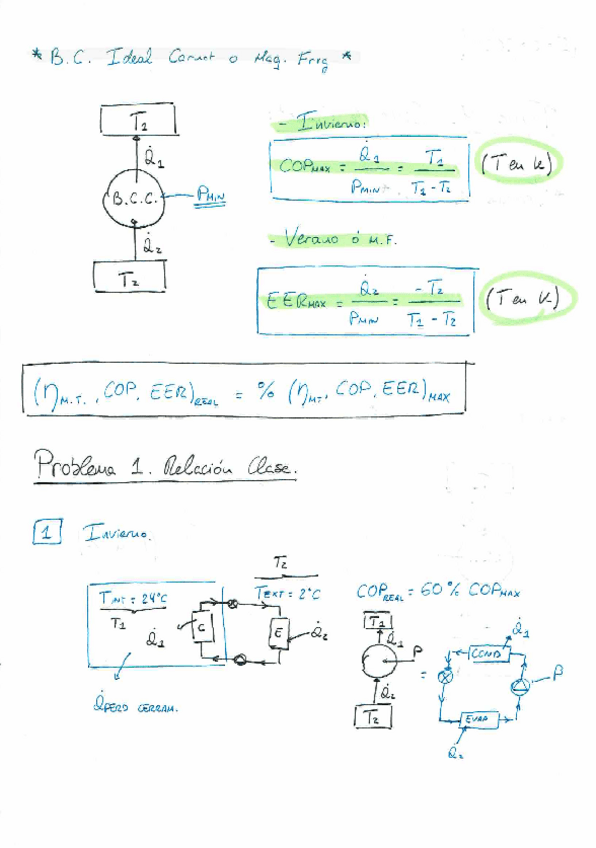 * B.C. Ideal Carnot o Maq. Frig *
T1
Q̇1
B.C.C.
PMIN
Q̇2
T2
- Invierno:
COPMAX = Q̇1 / PMIN = T1 / T1 - T2
(T en K)
- Verano ó M.F.
EERMAX = Q̇2 / PMIN = - T2 / T1 - T2
(T en K)
(ηM.T., COP, EER)REAL = % (ηMT, COP, EER)MAX
Problema 1. Relación Clase.
1 Invierno.
T2
TINT = 24°C
TEXT = 2°C
COPREAL = 60% COPMAX
T1
Q̇1
C
E
Q̇2
T1
Q̇1
P
Q̇2
T2
=
Q̇1
COND
P
EVAP
Q2
CERRAM.